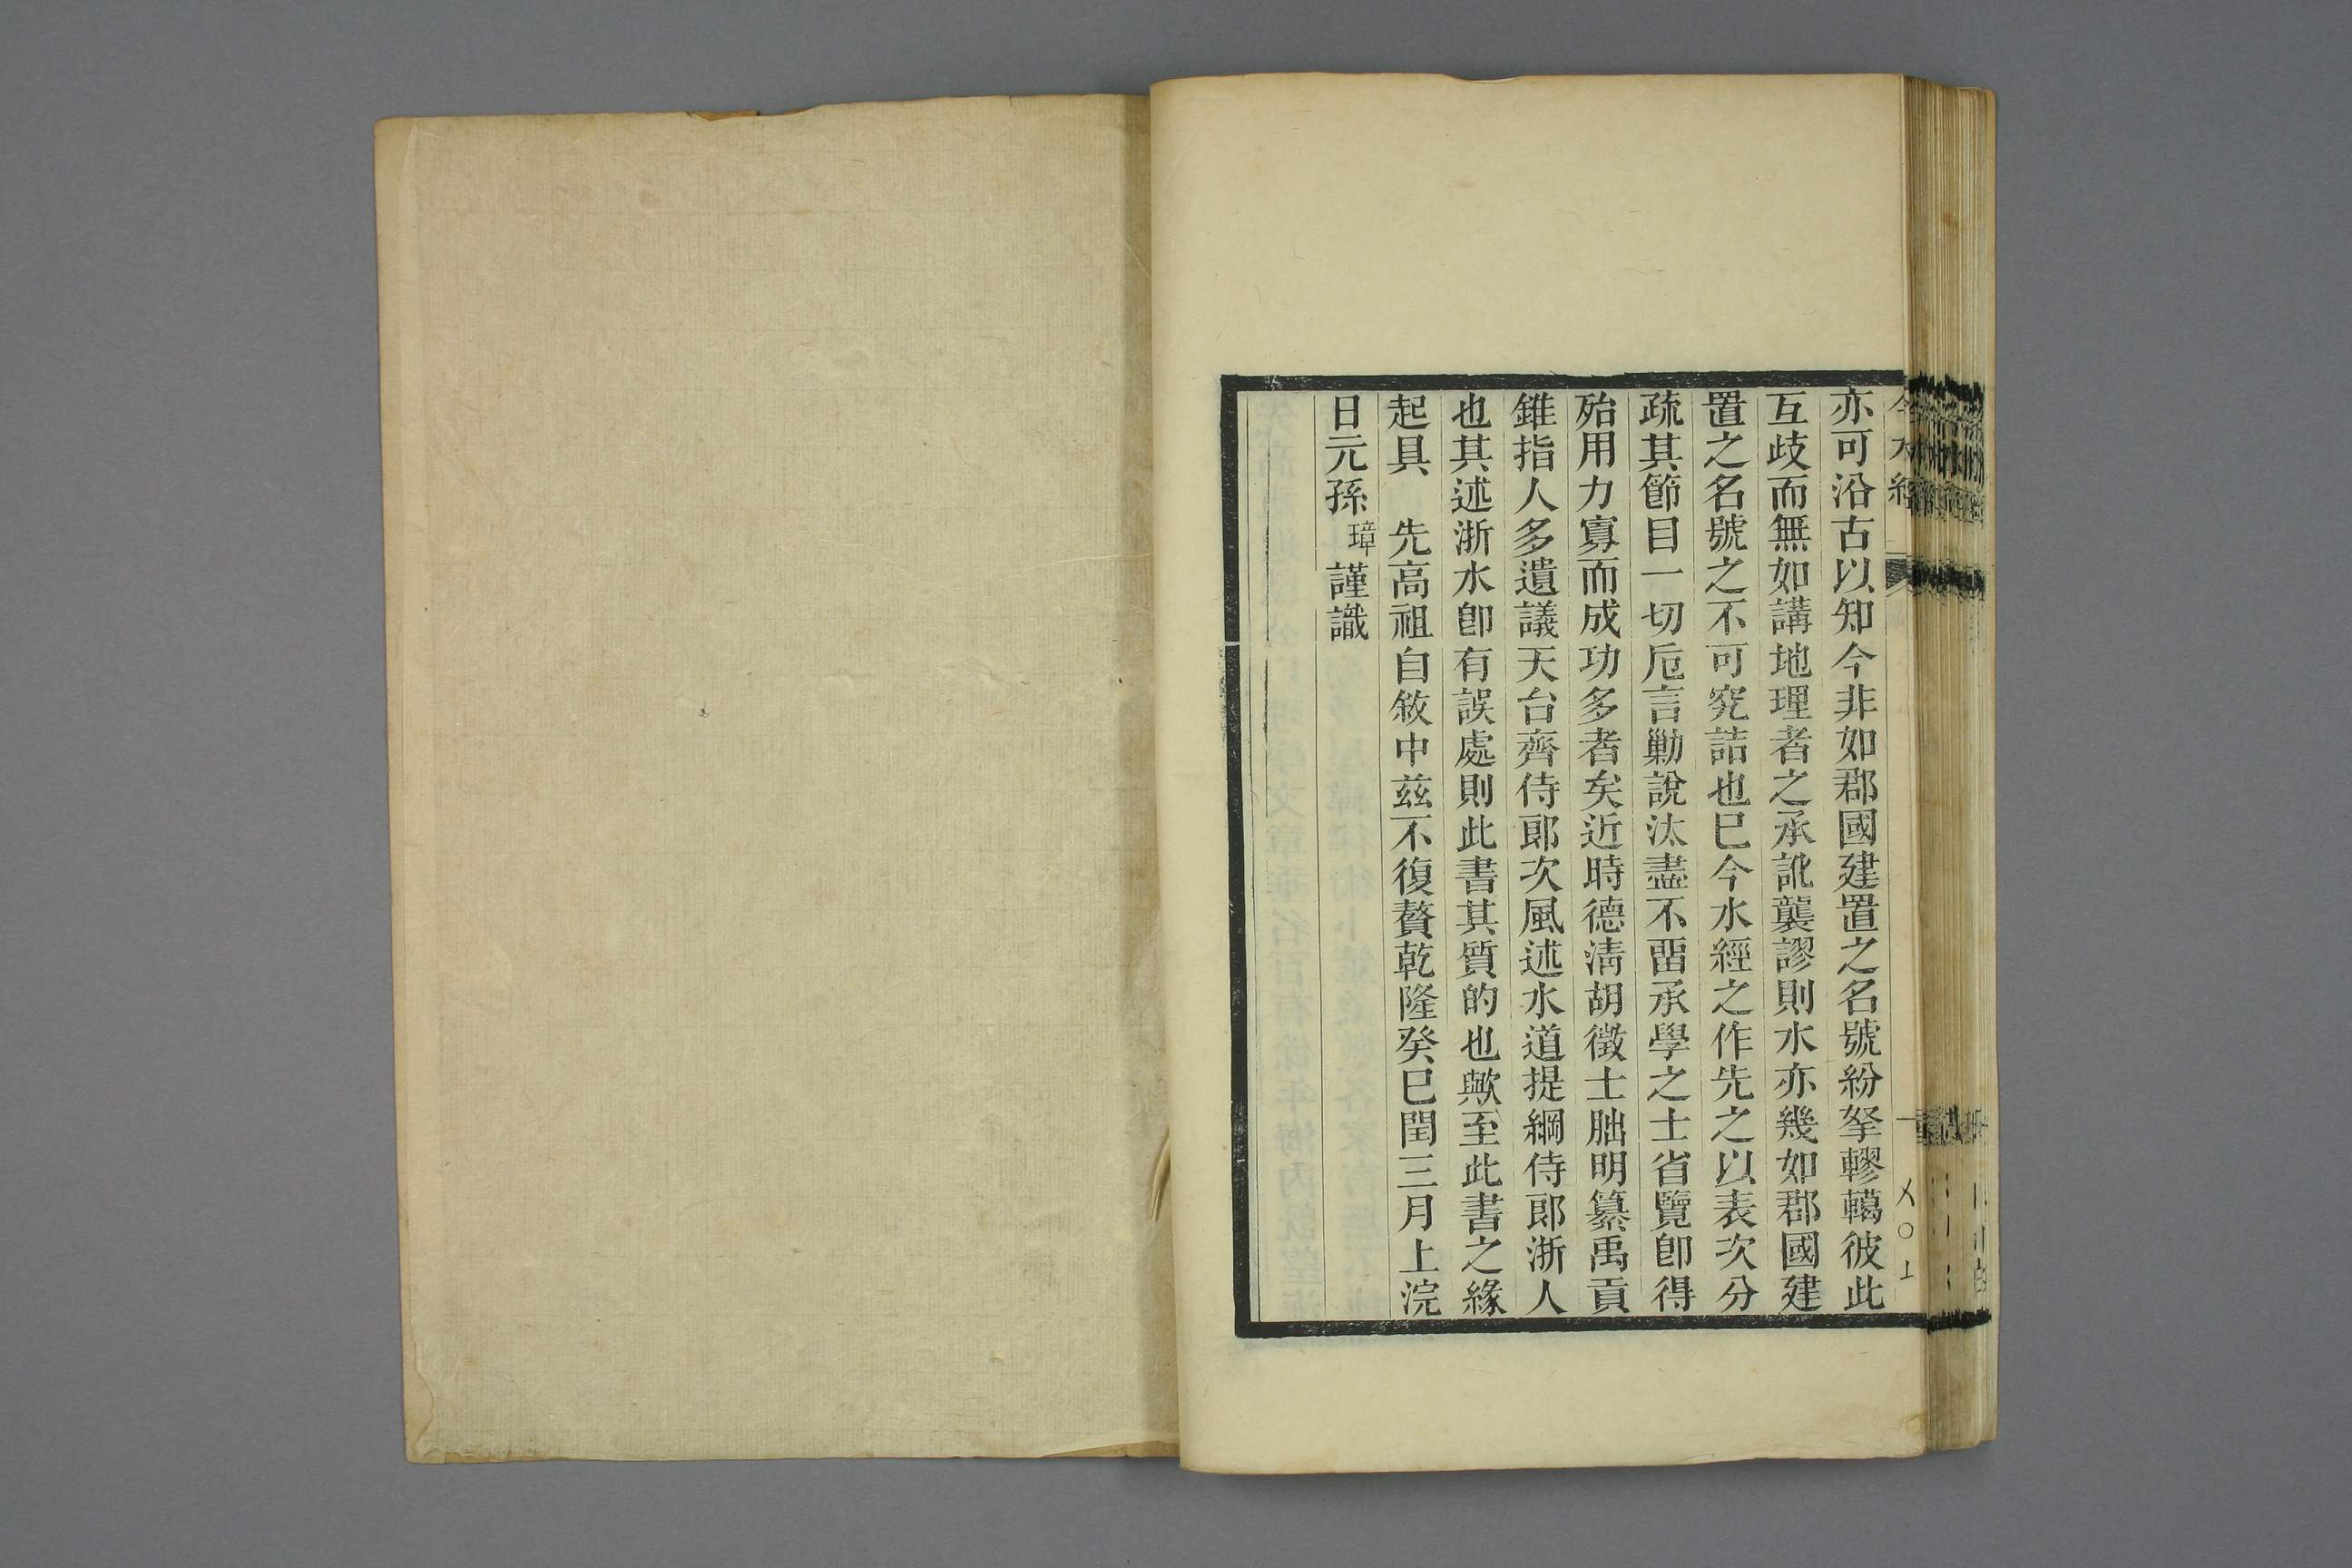 亦可沿古以知今非如郡國建置之名號紛拏轇轕彼此
互歧而無如講地理者之承訛襲謬則水亦幾如郡國建
置之名號之不可究詰也已今水經之作先之以表次分
疏其節目一切卮言勦說汰盡不畱承學之士省覽卽得
殆用力寡而成功多者矣近時德淸胡徵士朏明纂禹貢
錐指人多遺議天台齊侍郞次風述水道提綱侍郞浙人
也其述浙水卽有誤處則此書其質的也歟至此書之緣
起具　先高祖自敘中茲不復贅乾隆癸巳閏三月上浣
日元孫璋謹識
今水經